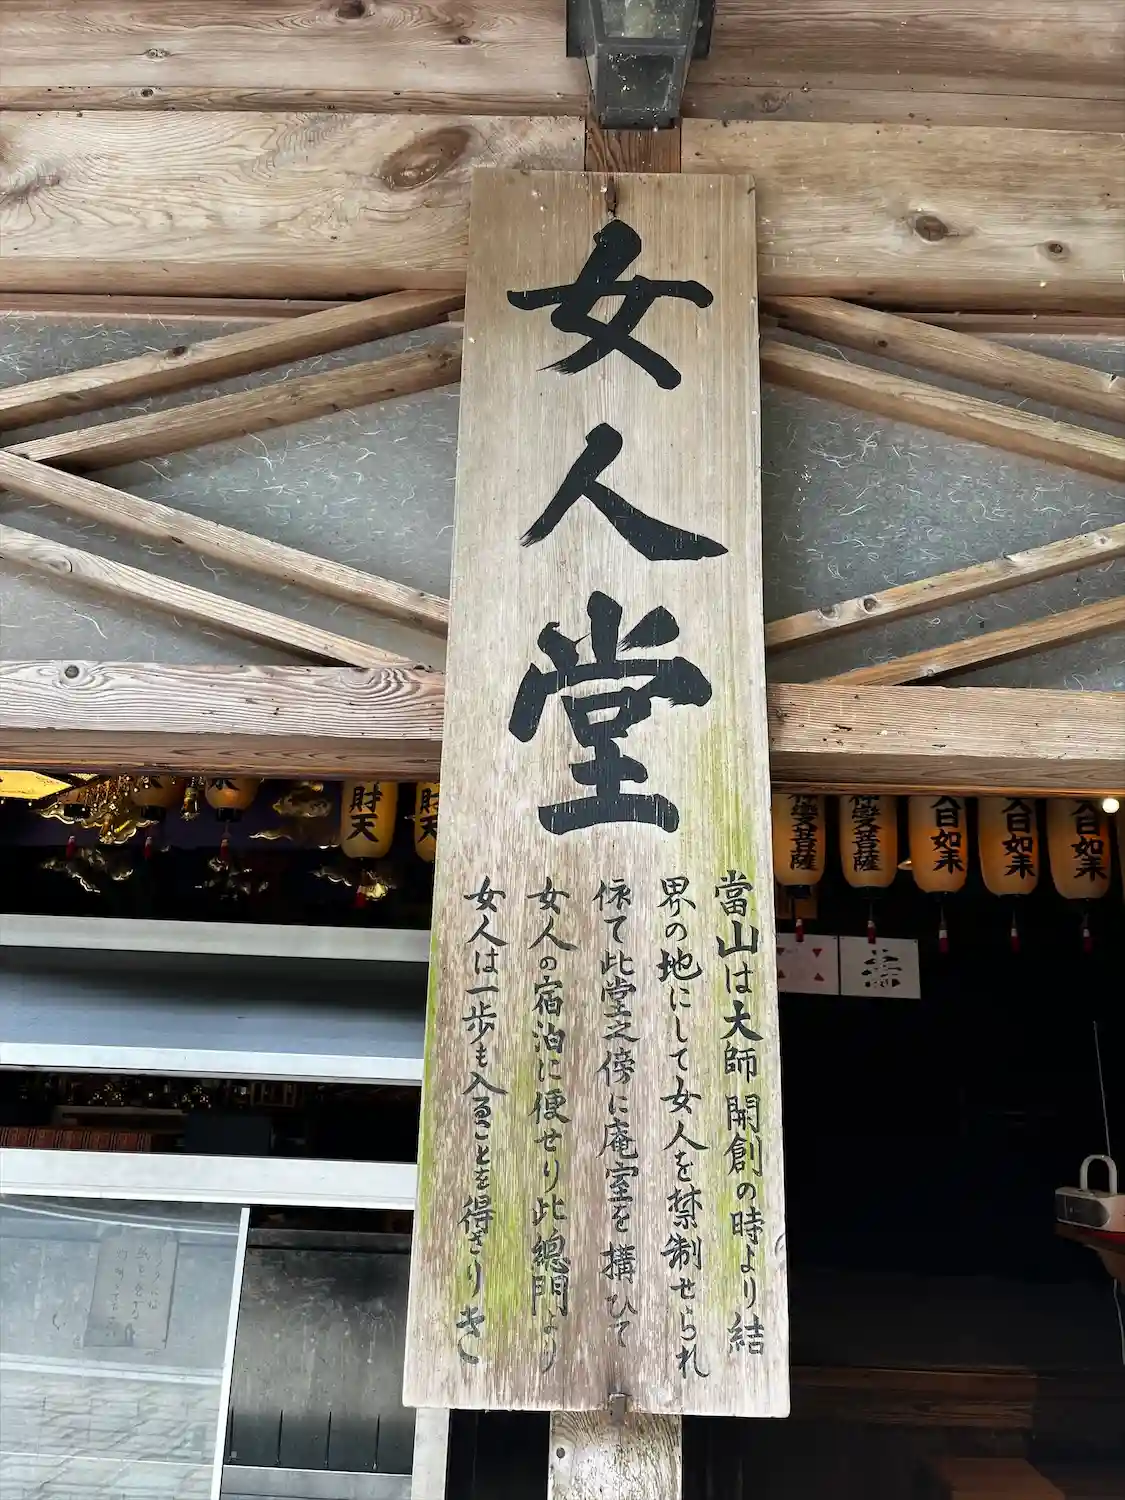 女人堂
當山は大師開創の時より結
界の地にして女人を禁制せられ
依て此堂之傍に庵室を構ひて
女人の宿泊に便せり此總門より
女人は一歩も入ることを得ざりき
財天
財天
菩薩
菩薩
大日如来
大日如来
大日如来